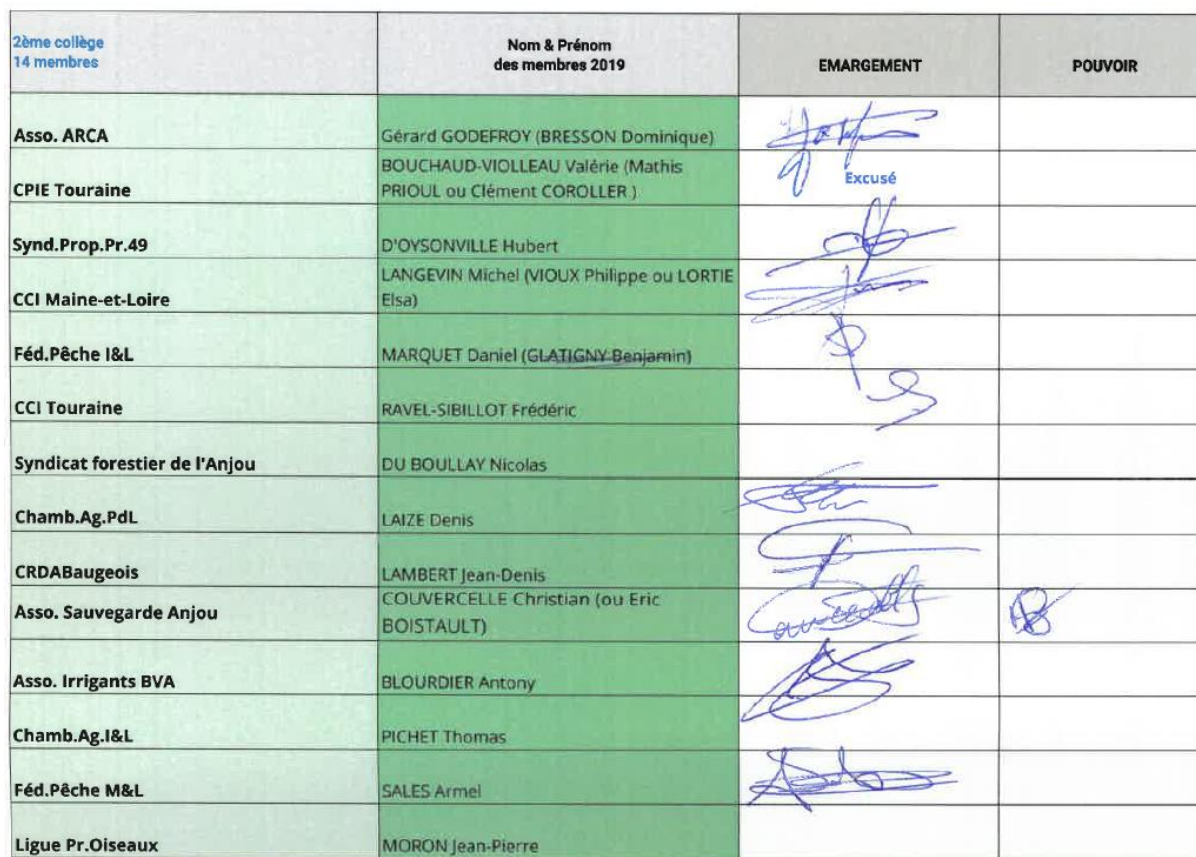 2ème collège
14 membres
Nom & Prénom
des membres 2019
EMARGEMENT
POUVOIR
Asso. ARCA
Gérard GODEFROY (BRESSON Dominique)
CPIE Touraine
BOUCHAUD-VIOLLEAU Valérie (Mathis
PRIOUL ou Clément COROLLER )
Excusé
Synd.Prop.Pr.49
D'OYSONVILLE Hubert
CCI Maine-et-Loire
LANGEVIN Michel (VIOUX Philippe ou LORTIE
Elsa)
Féd.Pêche I&L
MARQUET Daniel (GLATIGNY Benjamin)
CCI Touraine
RAVEL-SIBILLOT Frédéric
Syndicat forestier de l'Anjou
DU BOULLAY Nicolas
Chamb.Ag.PdL
LAIZE Denis
CRDABaugeois
LAMBERT Jean-Denis
Asso. Sauvegarde Anjou
COUVERCELLE Christian (ou Eric
BOISTAULT)
Asso. Irrigants BVA
BLOURDIER Antony
Chamb.Ag.I&L
PICHET Thomas
Féd.Pêche M&L
SALES Armel
Ligue Pr.Oiseaux
MORON Jean-Pierre